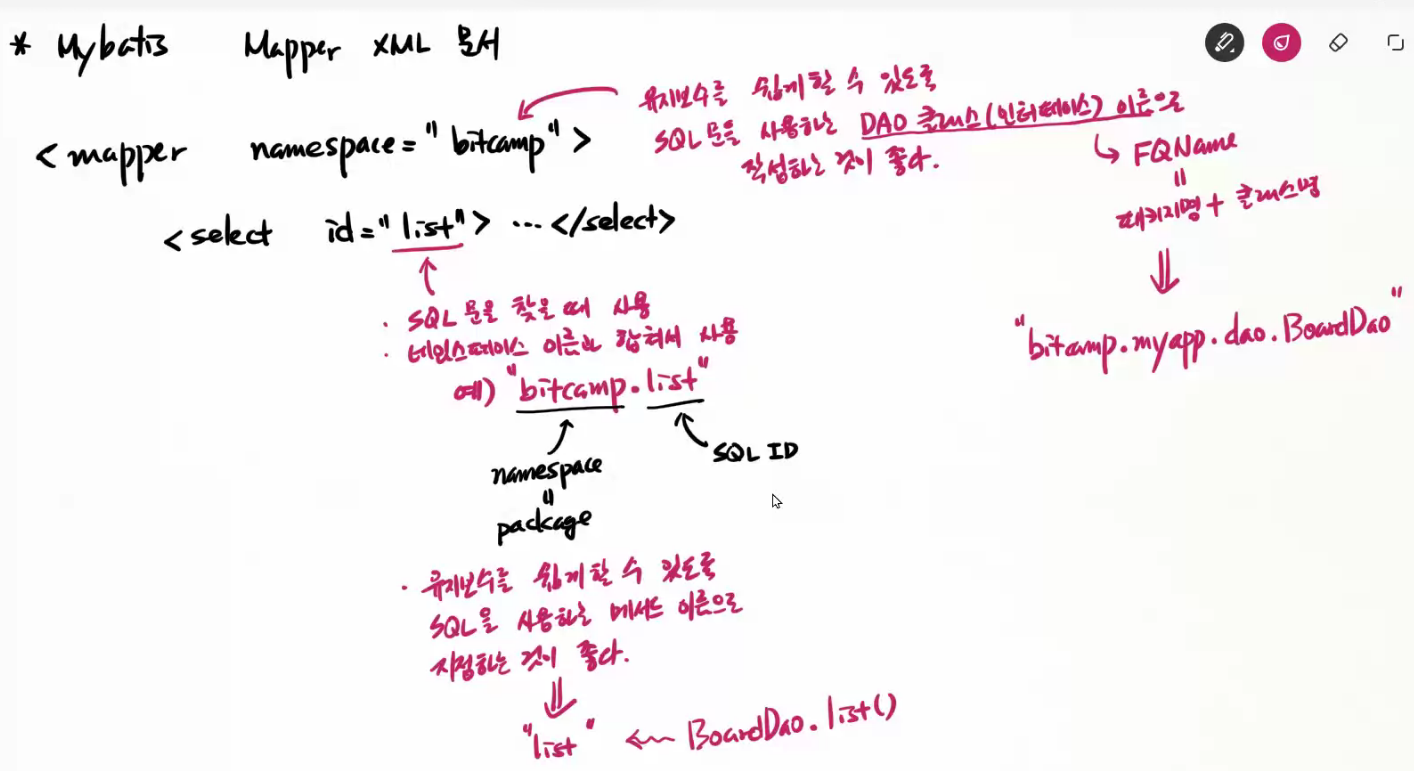 * Mybatis Mapper XML 문서
<mapper namespace="bitcamp">
유지보수를 쉽게 할 수 있도록
SQL 문을 사용하는 DAO 클래스(인터페이스) 이름으로
작성하는 것이 좋다.
↳ FQName
=
패키지명 + 클래스명
⇓
"bitcamp.myapp.dao.BoardDao"
<select id="list"> ... </select>
· SQL 문을 찾을 때 사용
· 네임스페이스 이름과 합쳐서 사용
예) "bitcamp.list"
SQL ID
namespace
=
package
· 유지보수를 쉽게 할 수 있도록
SQL을 사용하는 메서드 이름으로
지정하는 것이 좋다.
⇓
"list" ← BoardDao.list()